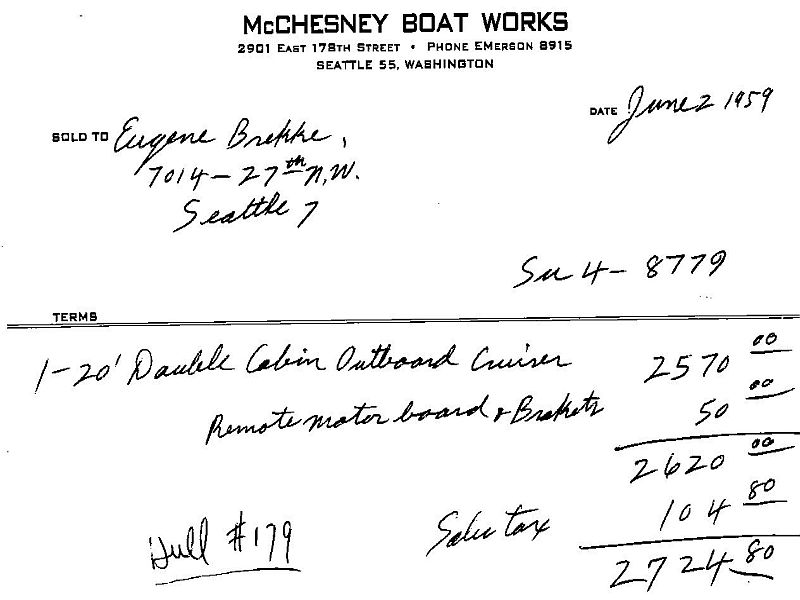 McCHESNEY BOAT WORKS
2901 EAST 178TH STREET • PHONE EMERSON 8915
SEATTLE 55, WASHINGTON
DATE June 2 1959
SOLD TO Eugene Brekke,
7014-27th N.W.
Seattle 7
Su 4-8779
TERMS
1-20' Double Cabin Outboard Cruiser 2570 00
Remote motor board & Brakets 50 00
2620 00
Sales tax 104 80
Hull #179
2724 80